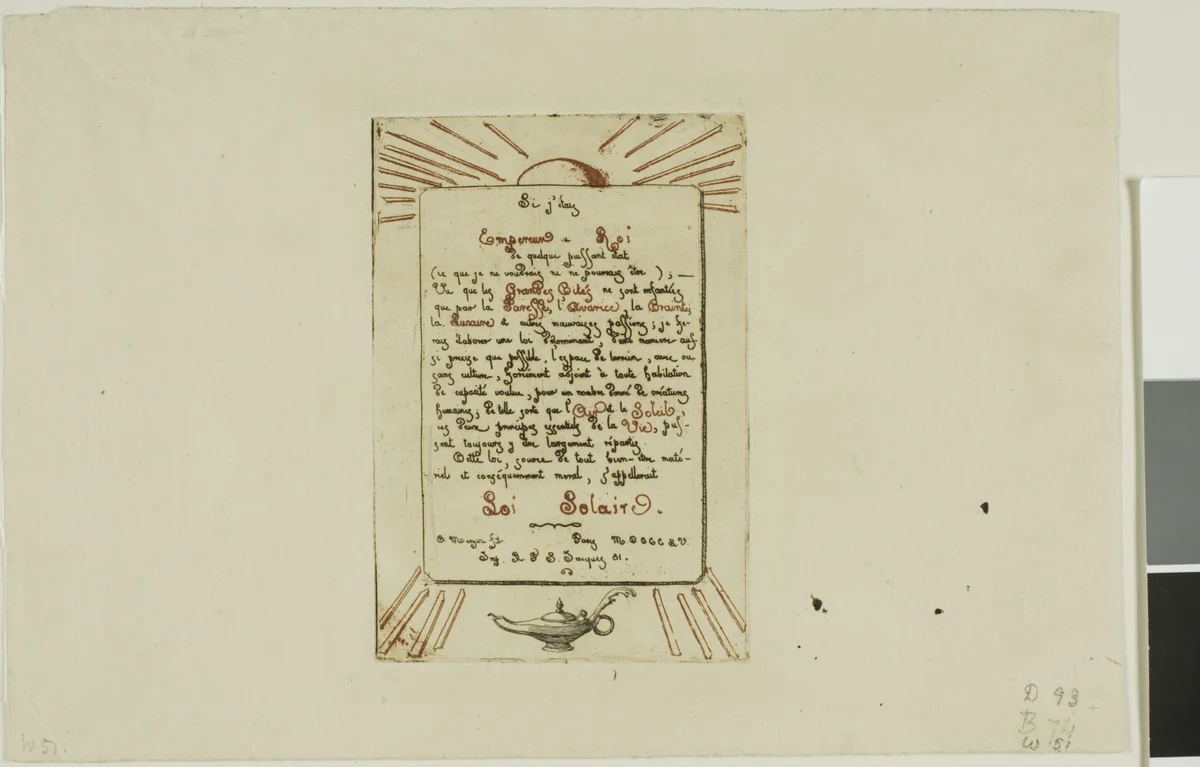 Si j'étais
Empereur ou Roi
de quelque puissant état
(ce que je ne voudrais ne ne pourrais être ) ; —
Vu que les Grandes Cités ne sont enfantées
que par la Paresse, l'Avarice, la Crainte,
la Luxure et autres mauvaises passions ; je fe-
rais élaborer une loi déterminant, d'une manière auf-
si précise que possible, l'espace de terrain, avec ou
sans culture, forcément adjoint à toute habitation
de capacité voulue, pour un nombre donné de créatures
humaines ; de telle sorte que l'Air et le Soleil,
ces deux principes essentiels de la Vie, puis-
sent toujours y être largement répartis.
Cette loi, source de tout bien-être maté-
riel et conséquemment moral, s'appellerait
Loi Solaire.
C. Meryon ft. Paris MDCCCLV.
Imp. R. F. S. Jacques 81.
D 93
B 74
W 51
W 51.